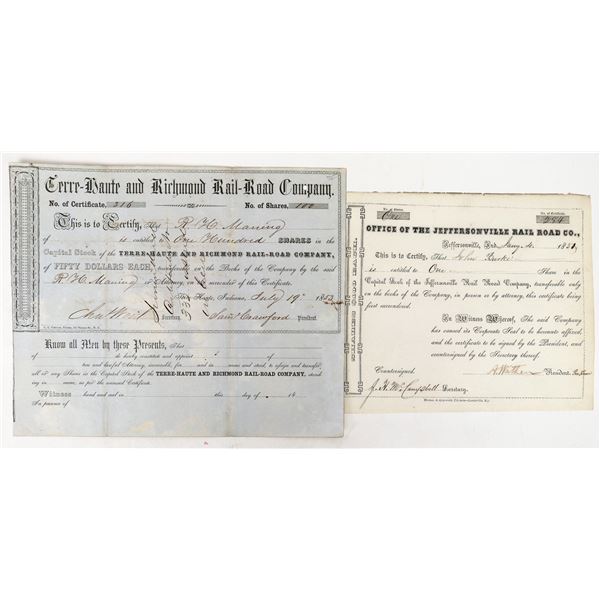 Terre-Haute and Richmond Rail-Road Company.
No. of Certificate, 316 No. of Shares, 100
This is to Certify, That R. H. Maning
of is entitled to One Hundred SHARES in the
Capital Stock of the TERRE-HAUTE AND RICHMOND RAIL-ROAD COMPANY,
OF FIFTY DOLLARS EACH, transferable on the Books of the Company by the said
R. H. Maning or Attorney, on surrender of this Certificate.
Terre Haute, Indiana, July 19th 1852
Chas Wood Secretary. Saml Crawford President.
Know all Men by these Presents, That
of do hereby constitute and appoint
of true and lawful Attorney, irrevocable, for and in name and stead, to assign and transfer
all or any Shares in the Capital Stock of the TERRE-HAUTE AND RICHMOND RAIL-ROAD COMPANY, standing
in name, as per the annexed Certificate.
Witness hand and seal in this day of 18
In presence of
No. of Shares. No. of Certificate.
One 224
OFFICE OF THE JEFFERSONVILLE RAIL ROAD CO.,
Jeffersonville, Ind. 4, 1851,
This is to Certify That John
is entitled to One Share in the
Capital Stock of the Jeffersonville Rail Road Company, transferable only
on the books of the Company, in person or by attorney, this certificate being
first surrendered.
In Witness Whereof, The said Company
has caused its Corporate Seal to be hereunto affixed,
and the certificate to be signed by the President, and
countersigned by the Secretary thereof.
Countersigned. President
J. H. McCampbell Secretary.